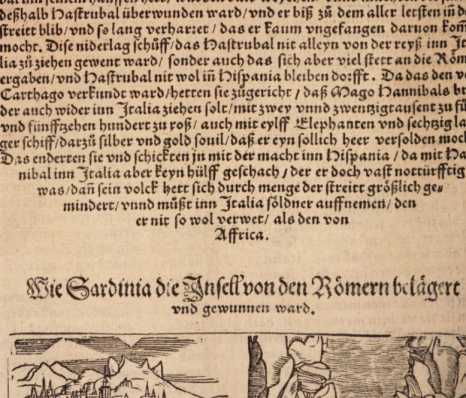 deßhalb Hastrubal überwunden ward/vnd er biß zů dem aller letsten in d
streitt blib/vnd so lang verharret/das er kaum vngefangen daruon kom
mocht. Dise niderlag schůff/das Hastrubal nit alleyn von der reyß inn J
lia zů ziehen gewent ward/sonder auch das sich aber viel stett an die Röm
ergaben/vnd Hastrubal nit wol in Hispania bleiben dorfft. Da das den v
Carthago verkundt ward/hetten sie zůgericht/daß Mago Hannibals br
der auch wider inn Italia ziehen solt/mit zwey vnnd zwentzigtausent zu fů
vnd fünfftzehen hundert zů roß/auch mit eylff Elephanten vnd sechtzig la
ger schiff/darzů silber vnd gold souil/daß er eyn sollich heer versolden moch
Das enderten sie vnd schickten jn mit der macht inn Hispania/da mit Ha
nibal inn Italia aber keyn hülff geschach/der er doch vast notturfftig
was/dañ sein volck hett sich durch menge der streitt größlich ge⸗
mindert/vnnd můßt inn Italia söldner auffnemen/den
er nit so wol verwet/als den von
Affrica.
Wie Sardinia die Insell von den Römern belägert
vnd gewunnen ward.